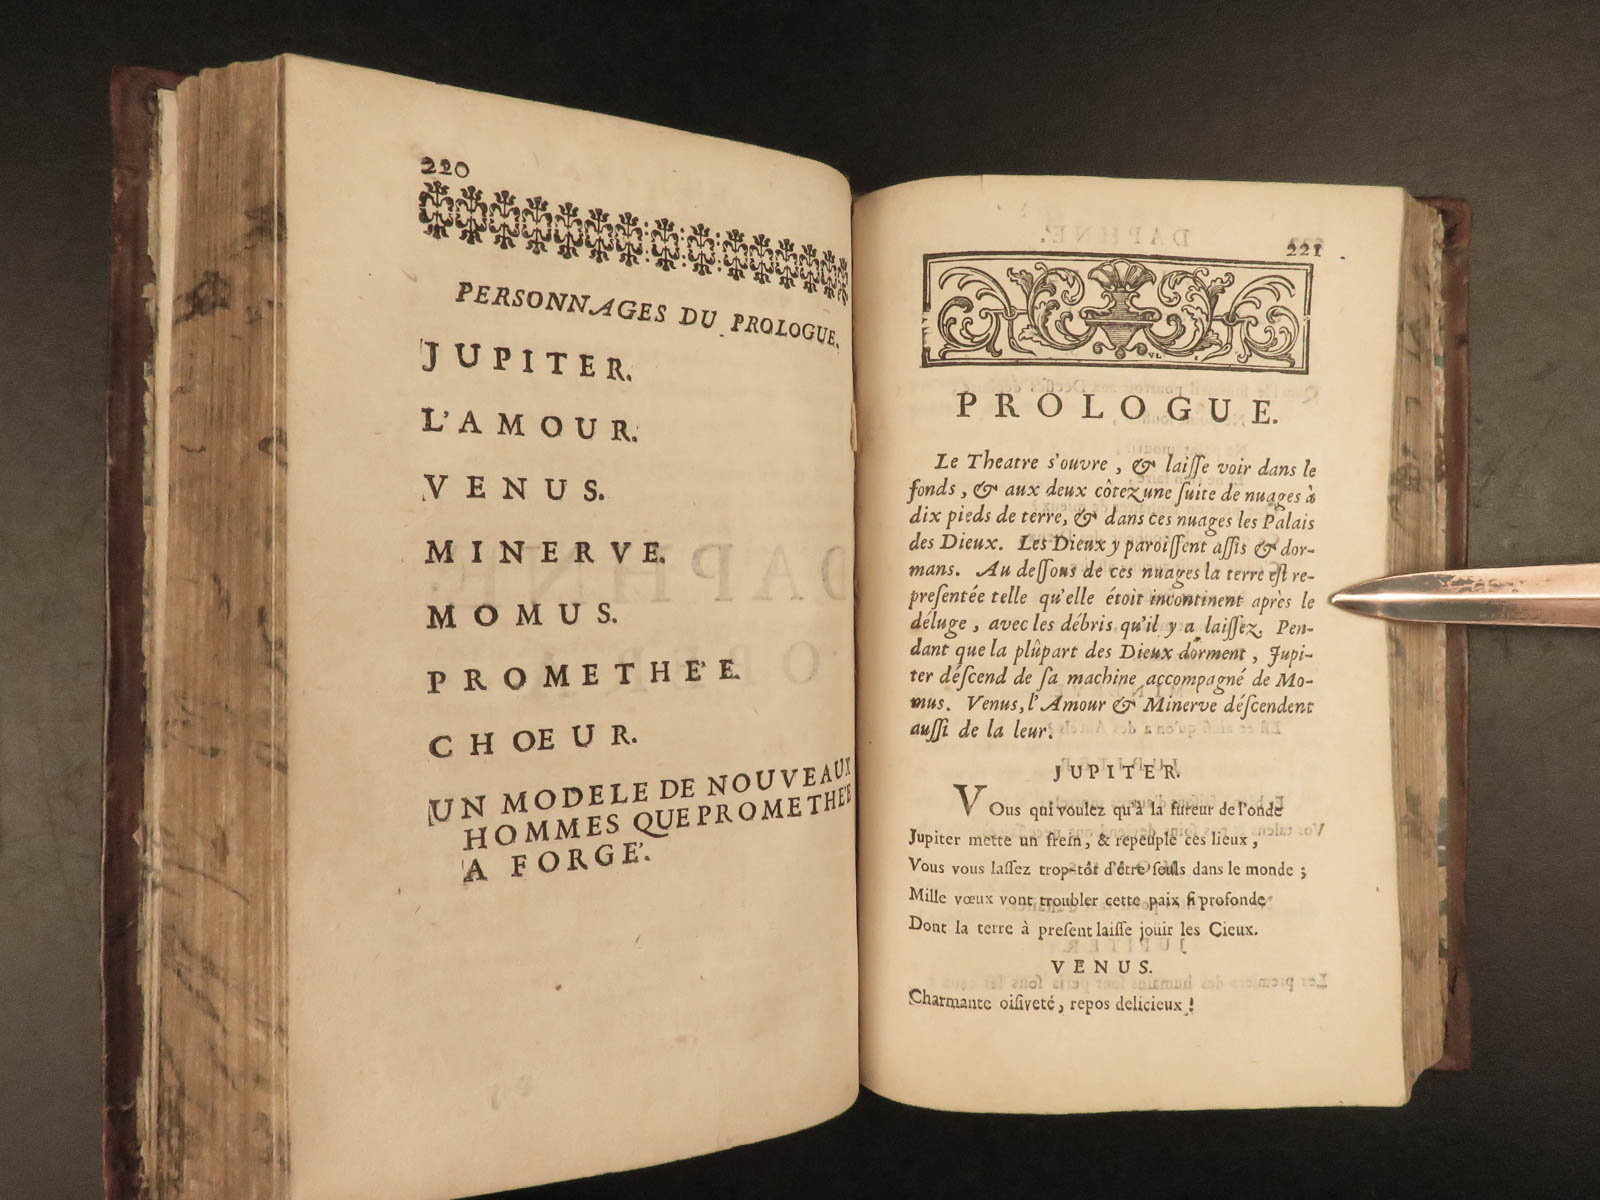 220
PERSONNAGES DU PROLOGUE.
JUPITER.
L'AMOUR.
VENUS.
MINERVE.
MOMUS.
PROMETHE'E.
CHOEUR.
UN MODELE DE NOUVEAUX
HOMMES QUE PROMETHE'E
A FORGE'.
221
PROLOGUE.
Le Theatre s'ouvre, & laiſſe voir dans le
fonds, & aux deux côtez une ſuite de nuages à
dix pieds de terre, & dans ces nuages les Palais
des Dieux. Les Dieux y paroiſſent aſſis & dor-
mans. Au deſſous de ces nuages la terre eſt re-
preſentée telle qu'elle étoit incontinent après le
déluge, avec les débris qu'il y a laiſſez. Pen-
dant que la plûpart des Dieux dorment, Jupi-
ter déſcend de ſa machine accompagné de Mo-
mus. Venus, l'Amour & Minerve déſcendent
auſſi de la leur.
JUPITER.
VOus qui voulez qu'à la fureur de l'onde
Jupiter mette un frein, & repeuple ces lieux,
Vous vous laſſez trop-tôt d'être ſeuls dans le monde;
Mille vœux vont troubler cette paix ſi profonde
Dont la terre à preſent laiſſe jouir les Cieux.
VENUS.
Charmante oiſiveté, repos delicieux!